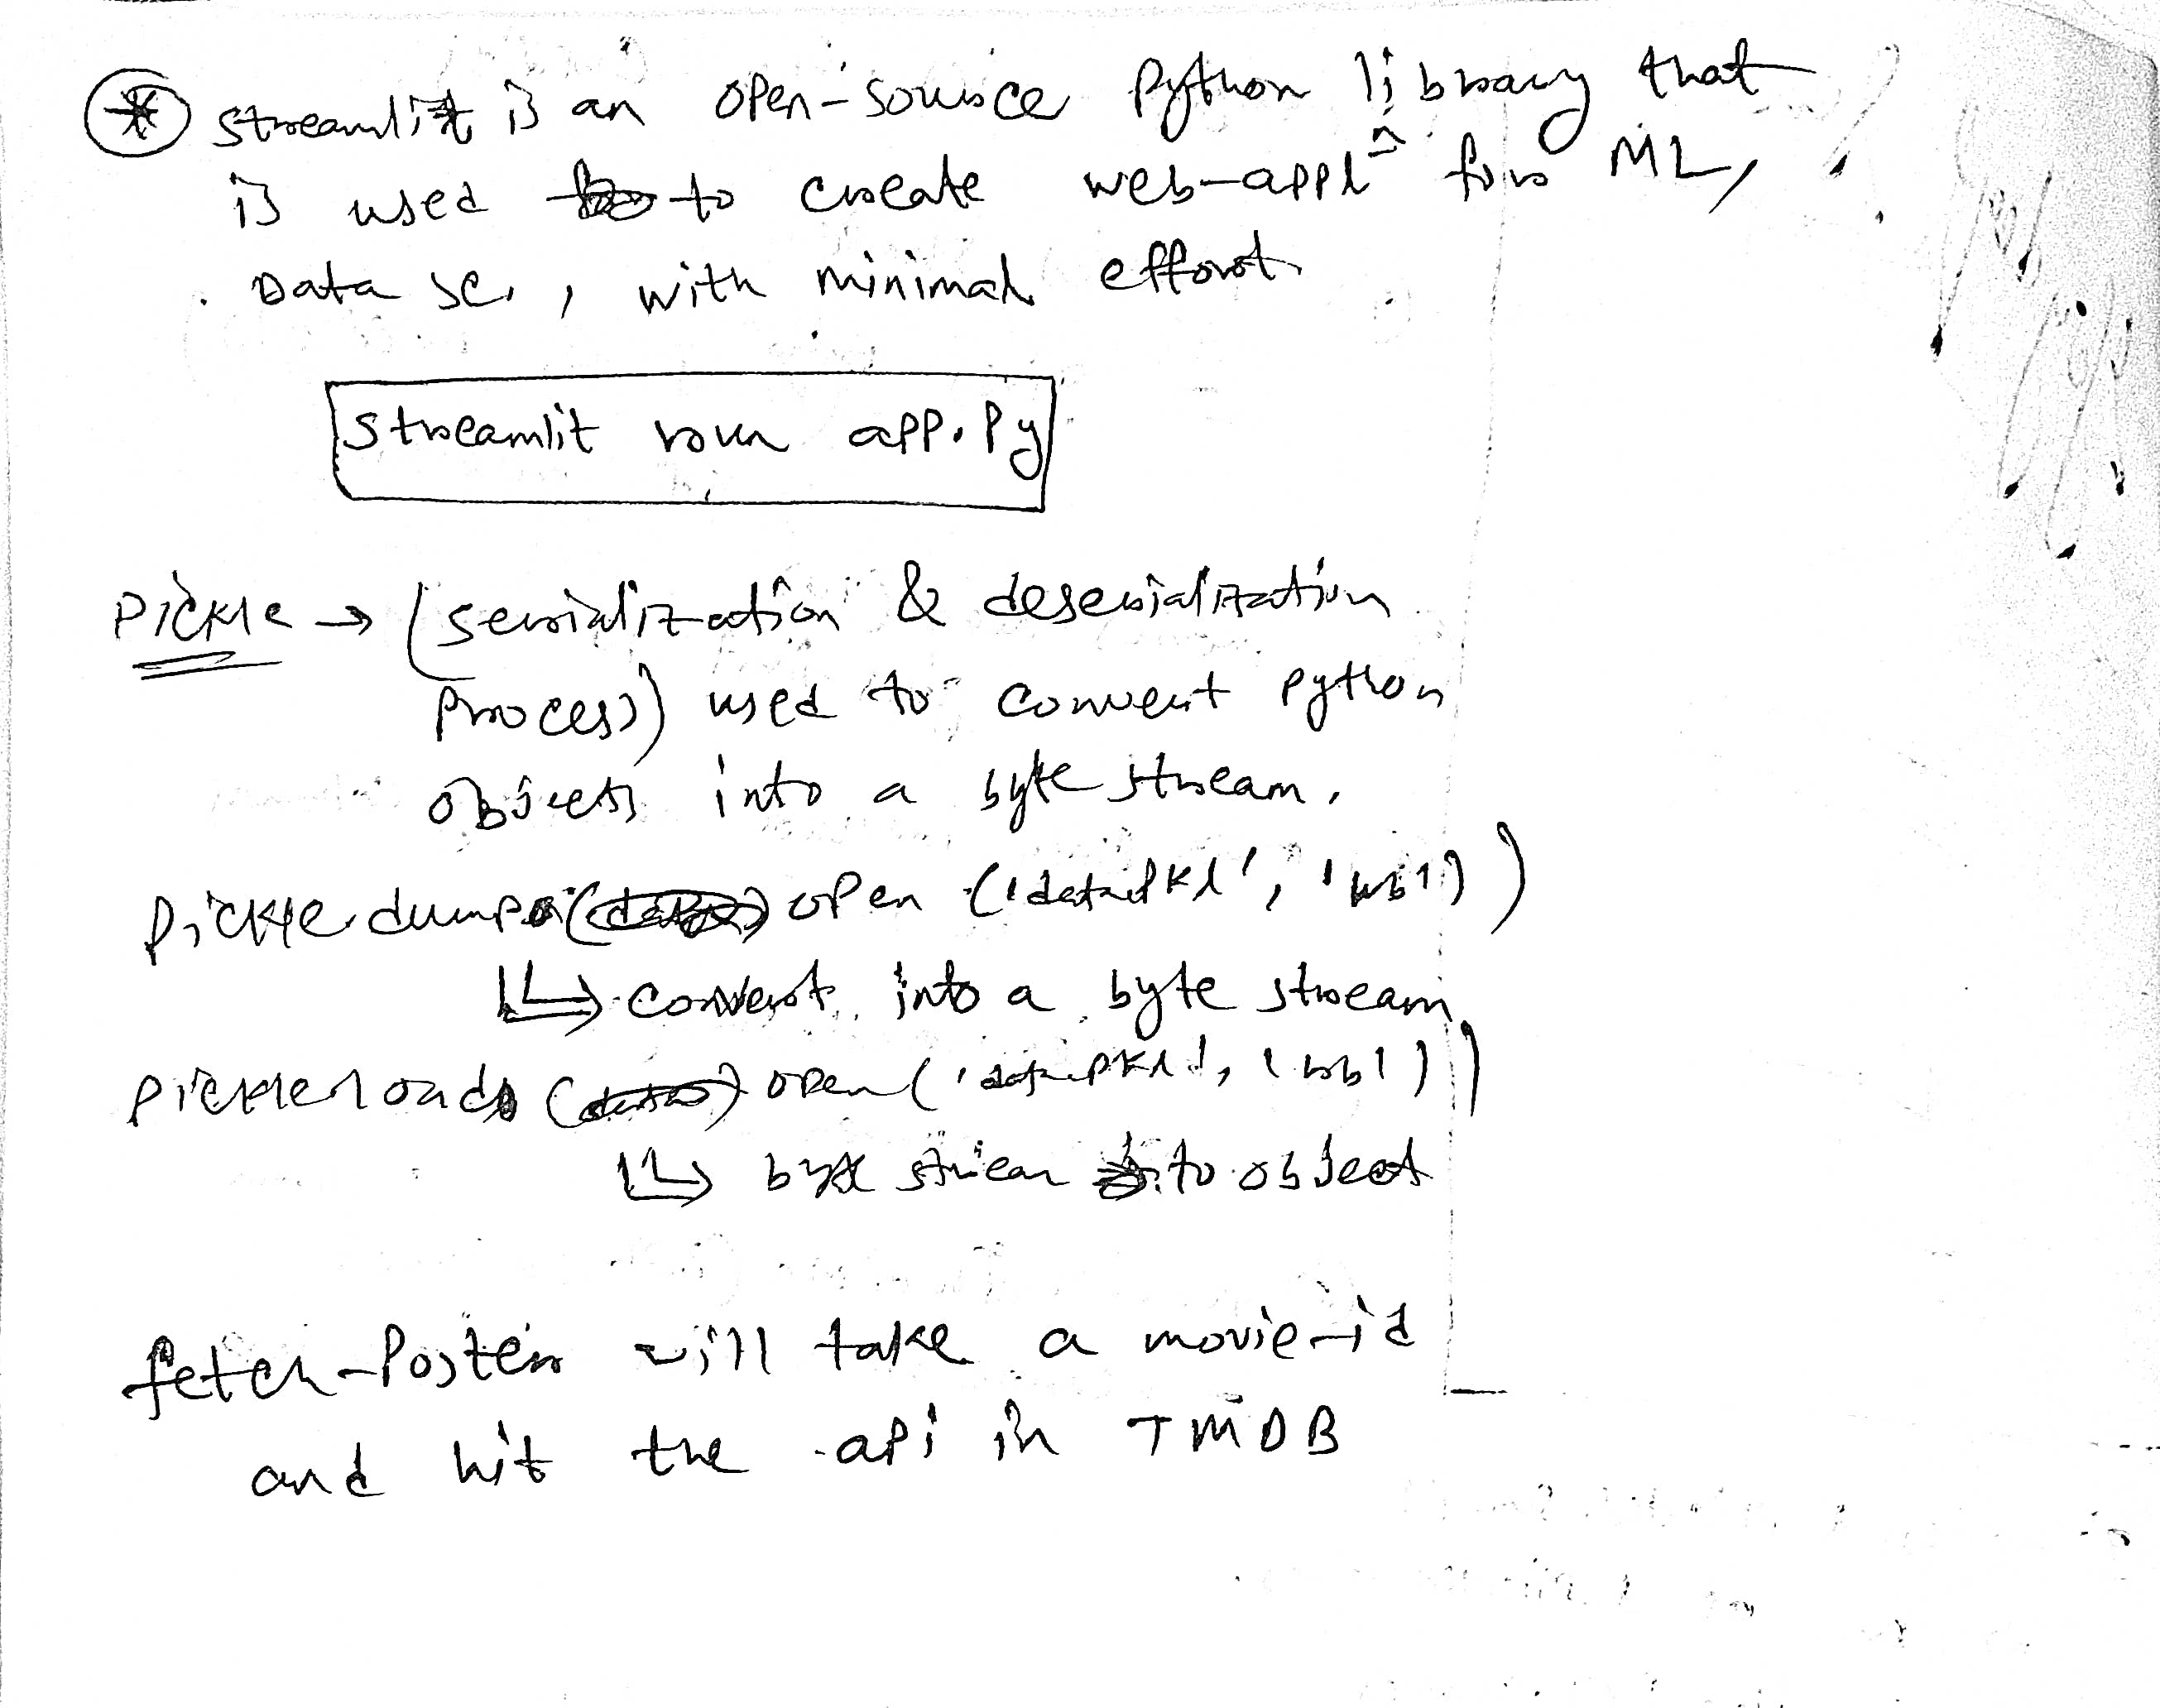 * Streamlit is an open-source Python library that
is used to create web-appl^n for ML,
Data sc., with minimal effort
Streamlit run app.py
Pickle → (serialization & deserialization
Process) used to convert python
objects into a byte stream.
Pickle.dump( open ('data.pkl', 'wb'))
↳ convert into a byte stream
pickle.load( open('data.pkl', 'rb'))
↳ byte stream to object
fetch-Poster will take a movie-id
and hit the api in TMDB